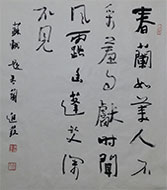 春蘭如美人不
采羞自獻時聞
風露香蓬艾深
不見
蘇軾題春蘭